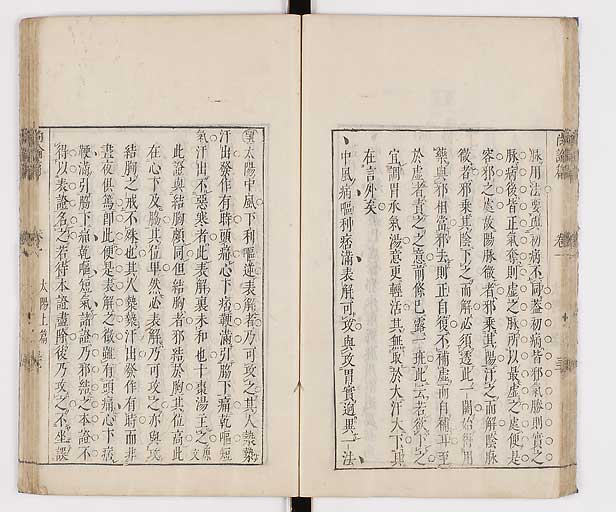 尚論篇
卷一
脉用法要真初病不同蓋初病皆邪氣勝則實之
脉病後皆正氣奪則虛之脉所以最虛之處便是
容邪之處故陽脉微者邪乘其陽汗之而解陰脉
微者邪乘其陰下之而解必須透此一關始得用
藥與邪相當邪去則正自復不補虛而自補耳至
於虛者責之之意前條已露一班此云若欲下之
宜調胃承氣湯意更輕活其無取於大汗大下具
在言外矣
中風病嘔利痞滿表解可攻與攻胃實適異一法
太陽中風下利嘔逆表解者乃可攻之其人漐漐
汗出發作有時頭痛心下痞鞕滿引脇下痛乾嘔短
氣汗出不惡寒者此表解裏未和也十棗湯主之原文
此證與結胸頗同但結胸者邪結於胸其位高此
在心下及脇其位卑然必表解乃可攻之亦與攻
結胸之戒不殊也其人漐漐汗出發作有時而非
晝夜俱篤即此便是表解之徵雖有頭痛心下痞
鞕滿引脇下痛乾嘔短氣諸證乃邪結之本證不
得以表證名之若待本證盡除後乃攻之不坐誤
尚論篇
太陽上篇